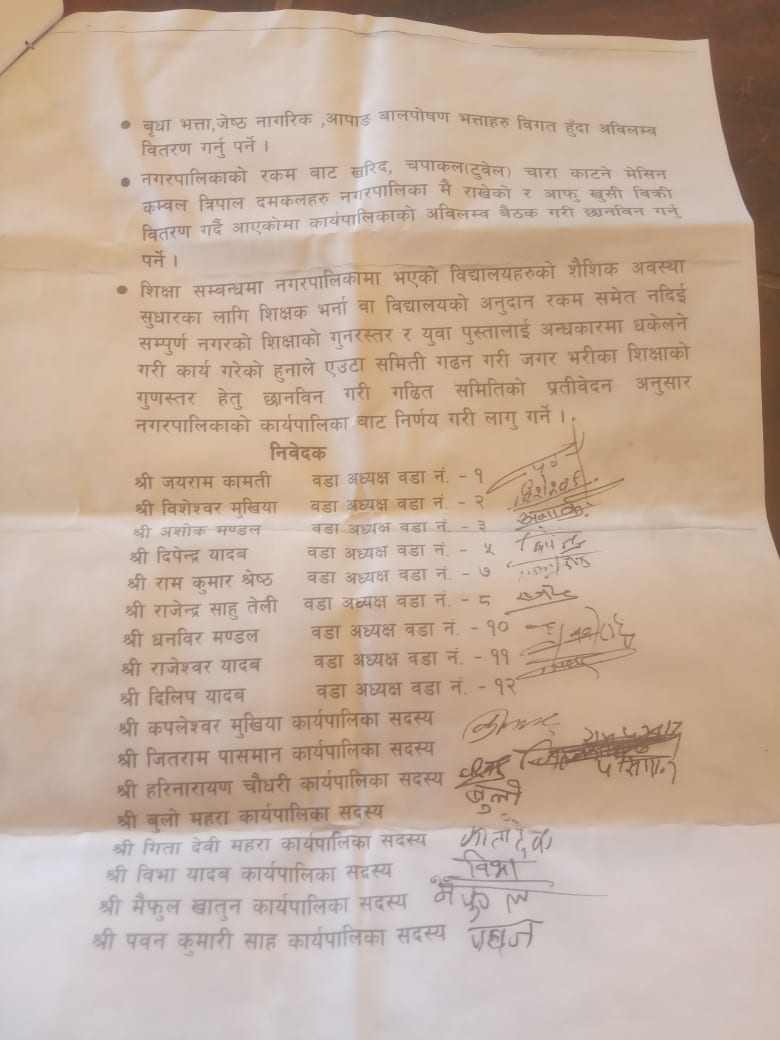 • बृधा भत्ता,जेष्ठ नागरिक ,आपाङ बालपोषण भत्ताहरु विगत हुँदा अविलम्व
वितरण गर्नु पर्ने ।
• नगरपालिकाको रकम बाट खरिद, चपाकल(टुवेल) चारा काटने मेसिन
कम्वल त्रिपाल दमकलहरु नगरपालिका मै राखेको र आफु खुसी विक्री
वितरण गर्दै आएकोमा कार्यपालिकाको अविलम्व बैठक गरी छानविन गर्नु
पर्ने ।
• शिक्षा सम्वन्धमा नगरपालिकामा भएको विद्यालयहरुको शैशिक अवस्था
सुधारका लागि शिक्षक भर्ना वा विद्यालयको अनुदान रकम समेत नदिई
सम्पुर्ण नगरको शिक्षाको गुनरस्तर र युवा पुस्तालाई अन्धकारमा धकेलने
गरी कार्य गरेको हुनाले एउटा समिती गढन गरी जगर भरीका शिक्षाको
गुणस्तर हेतु छानविन गरी गढित समितिको प्रतीवेदन अनुसार
नगरपालिकाको कार्यपालिका बाट निर्णय गरी लागु गर्ने ।
निवेदक
श्री जयराम कामती वडा अध्यक्ष वडा नं. - १
श्री विशेश्वर मुखिया वडा अध्यक्ष वडा नं. - २
श्री अशोक मण्डल वडा अध्यक्ष वडा नं. - ३
श्री दिपेन्द्र यादब वडा अध्यक्ष वडा नं. - ५
श्री राम कुमार श्रेष्ठ वडा अध्यक्ष वडा नं. - ७
श्री राजेन्द्र साहु तेली वडा अध्यक्ष वडा नं. - ८
श्री धनविर मण्डल वडा अध्यक्ष वडा नं. - १०
श्री राजेश्वर यादब वडा अध्यक्ष वडा नं. - ११
श्री दिलिप यादब वडा अध्यक्ष वडा नं. - १२
श्री कपलेश्वर मुखिया कार्यपालिका सदस्य
श्री जितराम पासमान कार्यपालिका सदस्य
श्री हरिनारायण चौधरी कार्यपालिका सदस्य
श्री बुलो महरा कार्यपालिका सदस्य
श्री गिता देवी महरा कार्यपालिका सदस्य
श्री विभा यादब कार्यपालिका सदस्य विभा
श्री मैफुल खातुन कार्यपालिका सदस्य
श्री पवन कुमारी साह कार्यपालिका सदस्य